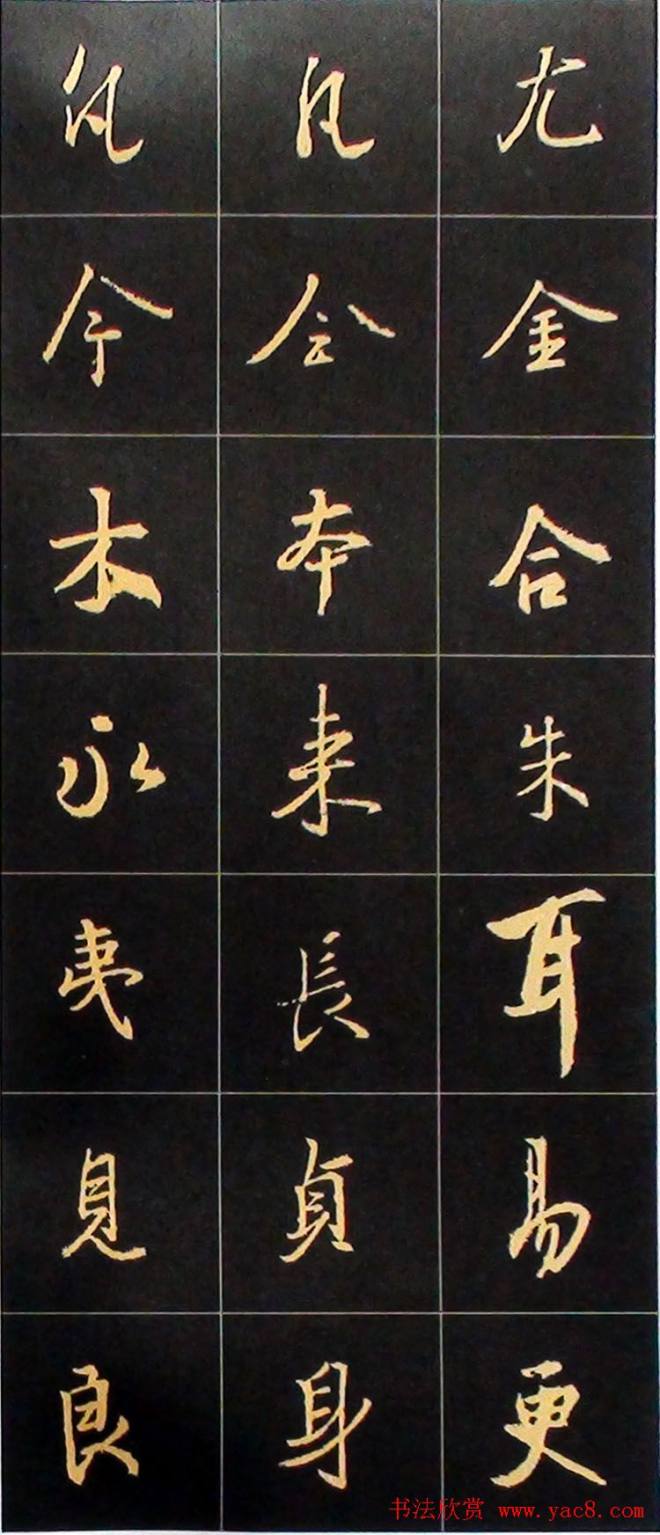 尤凡凡
金会今
合本木
朱来永
耳長夷
易貞見
更身良
书法欣赏 www.yac8.com